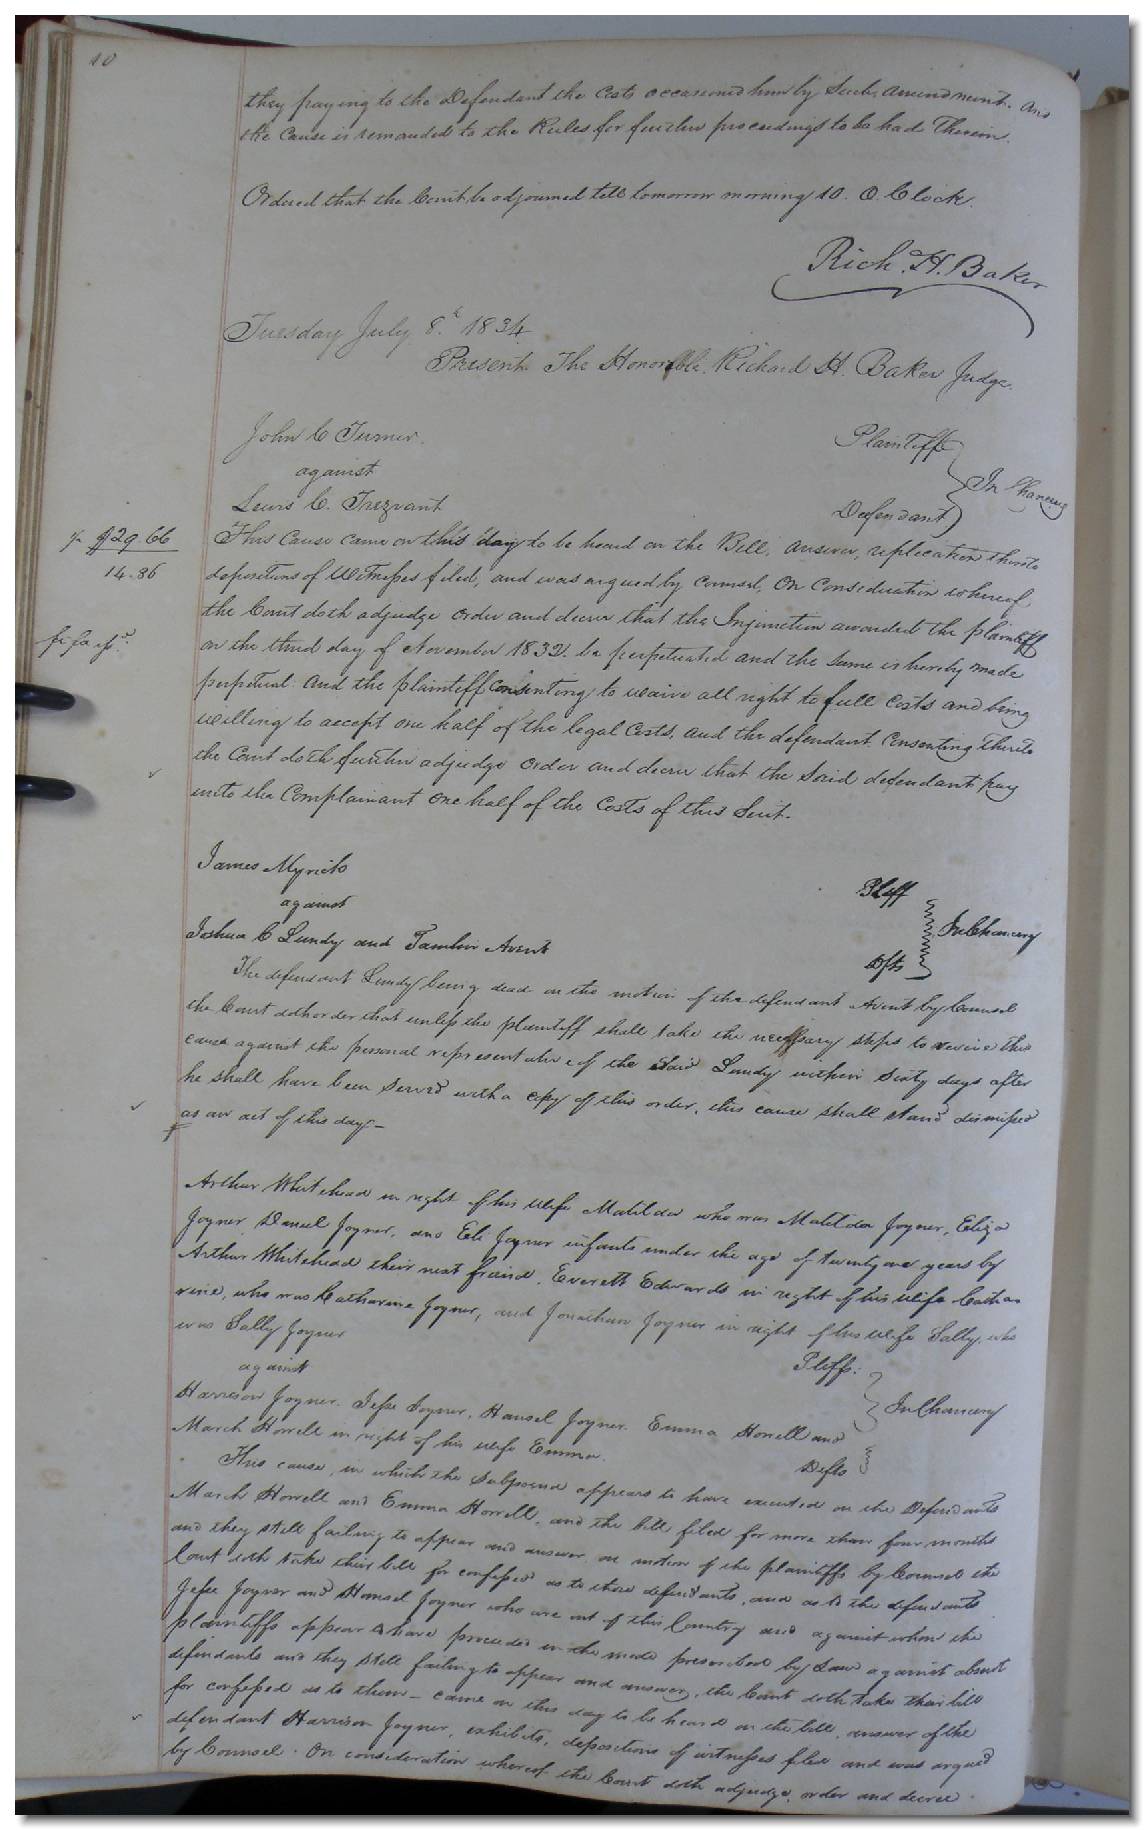 10
they paying to the Defendant the Costs occasioned him by Such amendment. And
the Cause is remanded to the Rules for further proceedings to be had Therein.
Ordered that the Court be adjourned till tomorrow morning 10. O. Clock.
Rich. H. Baker
Tuesday July 8th. 1834
Present The Honorable. Richard H. Baker Judge.
John C Turner. Plaintiff
against In Chancery
Lewis C. Trezvant Defendant
$29 66
14.86
This Cause came on this day to be heard on the Bill, answer, replication thereto
depositions of Witnesses filed, and was argued by Counsel, On Consideration whereof
the Court doth adjudge order and decree that the Injunction awarded the plaintiff
fi fa
on the third day of November 1832. be perpetuated and the same is hereby made
perpetual. And the plaintiff Consenting to waive all right to full Costs and being
willing to accept one half of the legal Costs, and the defendant Consenting thereto
the Court doth further adjudge order and decree that the Said defendant pay
unto the Complainant One half of the Costs of this Suit.
James Myrick Pltff
against In Chancery
Joshua C Lundy and Tamlin Avent Dfts
The defendant Lundy being dead on the motion of the defendant Avent by Counsel
the Court doth order that unless the plaintiff shall take the necessary steps to revive this
cause against the personal representative of the said Lundy within Sixty days after
he shall have been Served with a copy of this order, this cause shall stand dismissed
as an act of this day—
Arthur Whitehead in right of his Wife Matilda who was Matilda Joyner, Eliza
Joyner Daniel Joyner, and Eli Joyner infants under the age of twenty one years by
Arthur Whitehead their next friend, Everett Edwards in right of his Wife Catha-
rine, who was Catharine Joyner, and Jonathan Joyner in right of his Wife Sally, who
was Sally Joyner Pltffs:
against In Chancery
Harrison Joyner. Jesse Joyner, Hansel Joyner. Emma Howell and
March Howell in right of his wife Emma. Defts
This cause, in which the Subpoena appears to have executed on the Defendants
March Howell and Emma Howell, and the bill filed for more than four months
and they still failing to appear and answer, on motion of the plaintiffs by Counsel the
Court doth take their bill for confessed as to those defendants, and as to the defendants
Jesse Joyner and Hansel Joyner who are out of this Country and against whom the
plaintiffs appear to have proceeded in the mode prescribed by Law against absent
defendants and they still failing to appear and answer, the Court doth take their bill
for confessed as to them— came on this day to be heard on the bill, answer of the
defendant Harrison Joyner, exhibits, depositions of witnesses filed and was argued
by Counsel. On consideration whereof the Court doth adjudge, order and decree